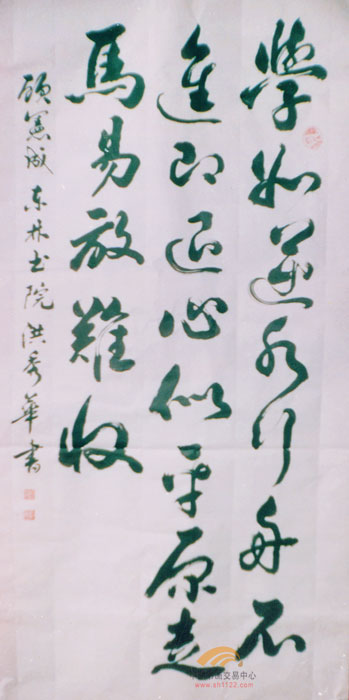 學如逆水行舟不
進即退心似平原走
馬易放難收
顾宪成东林书院洪秀華書
交易中心
www.sh1122.com